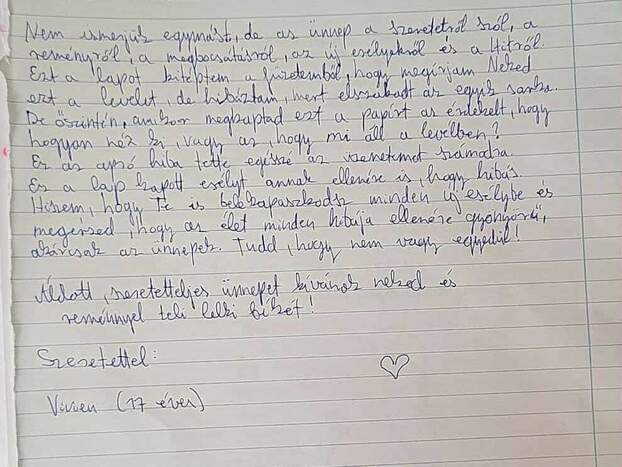 Nem ismerjük egymást, de az ünnep a szeretetről szól, a
reményről, a megbocsátásról, az új esélyekről és a Hitről.
Ezt a lapot kitéptem a füzetemből, hogy megírjam Neked
ezt a levelet, de hibáztam, mert elszakadt az egyik sarka.
De őszintén, amikor megkaptad ezt a papírt az érdekelt, hogy
hogyan néz ki, vagy az, hogy mi áll a levélben?
Ez az apró hiba tette egésszé az üzenetemet számodra.
Ez a lap kapott esélyt annak ellenére is, hogy hibás.
Hiszem, hogy Te is belekapaszkodsz minden új esélybe és
megérzed, hogy az élet minden hibája ellenére gyönyörű,
akárcsak az ünnepek. Tudd, hogy nem vagy egyedül!
Áldott, szeretetteljes ünnepet kívánok neked és
reménnyel teli lelki békét!
Szeretettel:
Vivien (17 éves)